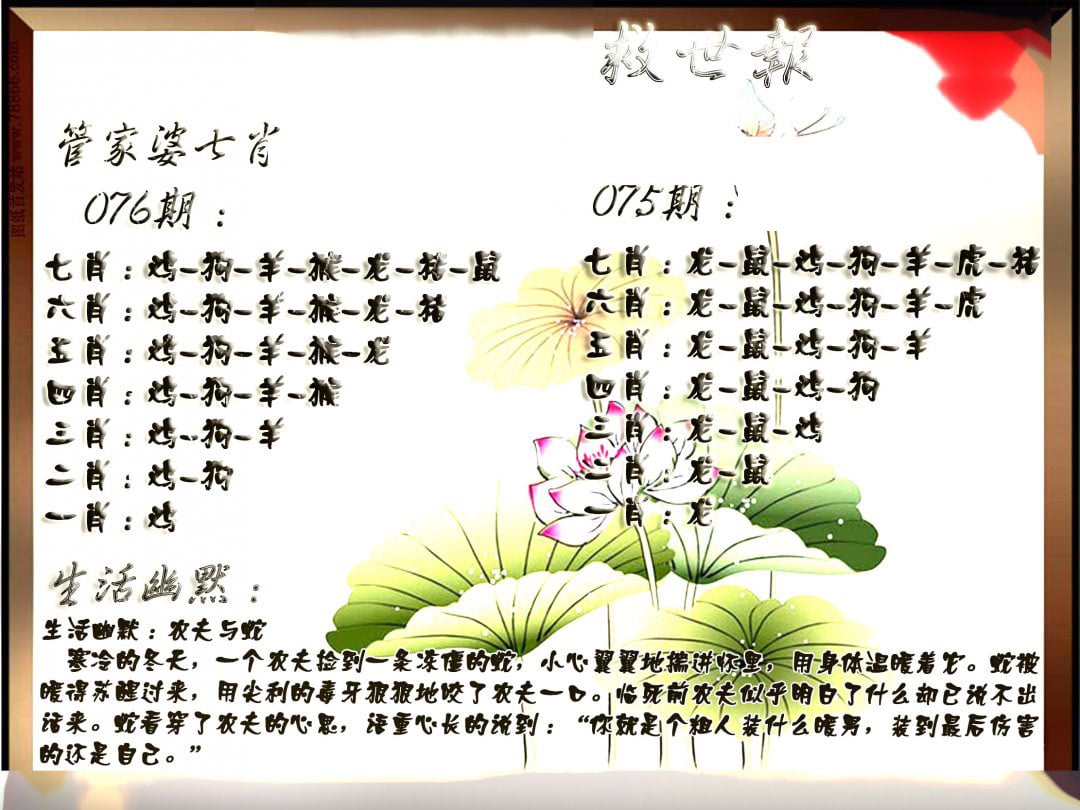 救世報
图纸首发站 www.78866.com
管家婆七肖
076期：
七肖：鸡-狗-羊-猴-龙-猪-鼠
六肖：鸡-狗-羊-猴-龙-猪
五肖：鸡-狗-羊-猴-龙
四肖：鸡-狗-羊-猴
三肖：鸡-狗-羊
二肖：鸡-狗
一肖：鸡
075期：
七肖：龙-鼠-鸡-狗-羊-虎-猪
六肖：龙-鼠-鸡-狗-羊-虎
五肖：龙-鼠-鸡-狗-羊
四肖：龙-鼠-鸡-狗
三肖：龙-鼠-鸡
二肖：龙-鼠
一肖：龙
生活幽默：
生活幽默：农夫与蛇
寒冷的冬天，一个农夫捡到一条冻僵的蛇，小心翼翼地揣进怀里，用身体温暖着它。蛇被
暖得苏醒过来，用尖利的毒牙狠狠地咬了农夫一口。临死前农夫似乎明白了什么却已说不出
话来。蛇看穿了农夫的心思，语重心长的说到：“你就是个粗人装什么暖男，装到最后伤害
的还是自己。”